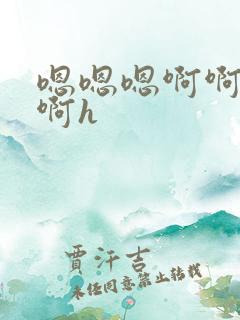 嗯嗯嗯啊啊
啊h
賈汗吉
未经同意禁止转载